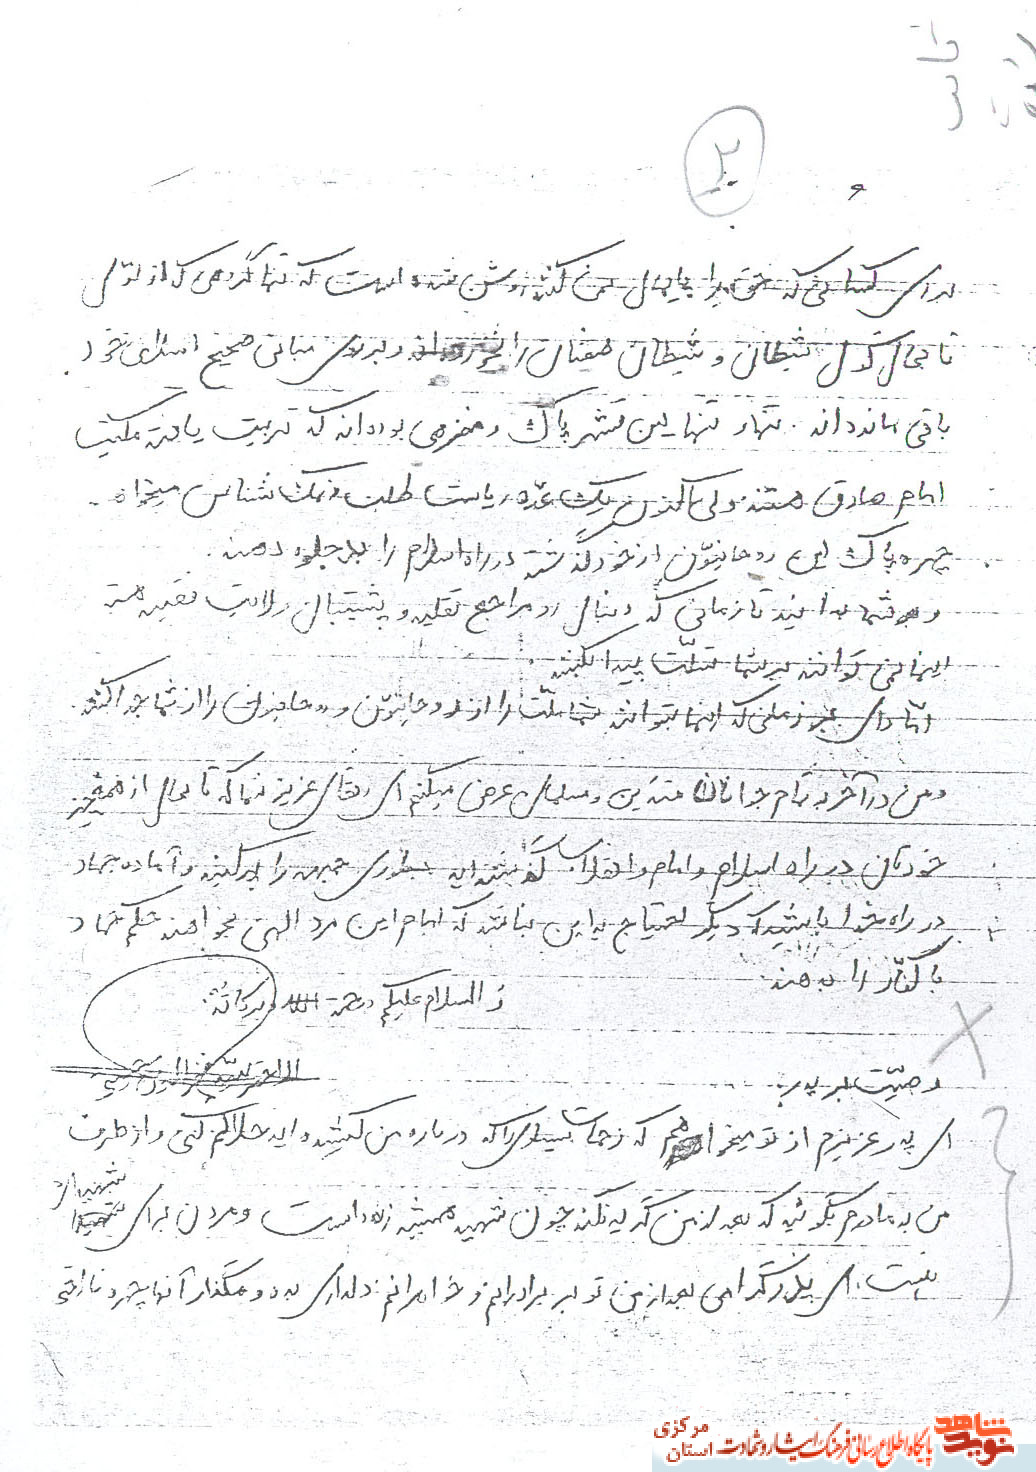 ۲
برای کسانی که حق را پایمال نمی کنند روشن شده است که تنها گروهی که از اول
تا بحال گول شیطان و شیطان صفتان را نخورده‌اند و بر روی مبانی صحیح اسلامی خود
باقی مانده‌اند. تنها و تنها این قشر پاک و بوده‌اند که تربیت یافته مکتب
امام صادق هستند ولی اکنون یک عده ریاست طلب و نمک شناس میخواهند
چهره پاک این روحانیون از خود گذشته در راه اسلام را بد جلوه دهند.
و شما بدانید تا زمانی که دنبال رو مراجع تقلید و پشتیبان ولایت فقیه هستید
اینها نمی توانند بر شما تسلّت پیدا بکنند.
امّا وای بر زمانی که اینها بتوانند شما ملّت را از روحانیون و روحانیون را از شما جدا کنند.
و من در آخر به تمام جوانان متدیّن و مسلمان عرض میکنم ای رفقای عزیز شما که تا بحال از همه چیز
خودتان در راه اسلام و امام و انقلاب گذشته‌اید سنگرها را پر کنید و آماده جهاد
در راه خدا باشید که دیگر احتیاج به این نباشد که امام این مرد الهی بخواهند حکم جهاد
با کفّار را بدهند.
و السلام علیکم و رحمت الله و برکاته
وصیّت بر پدر:
ای پدر عزیزم از تو میخواهم که زحمات بسیاری را که درباره من کشیده‌اید حلالم کنی و از طرف
من به مادرم بگوئید که بعد از من گریه نکند چون شهید همیشه زنده است و مردن برای شهیدان
نیست. ای پدر گرامی بعد از من تو بر برادرانم و خواهرانم دلداری بده و مگذار آنها چهره ناراحتی
نوید شاهد
پایگاه اطلاع رسانی فرهنگ ایثار و شهادت استان مرکزی